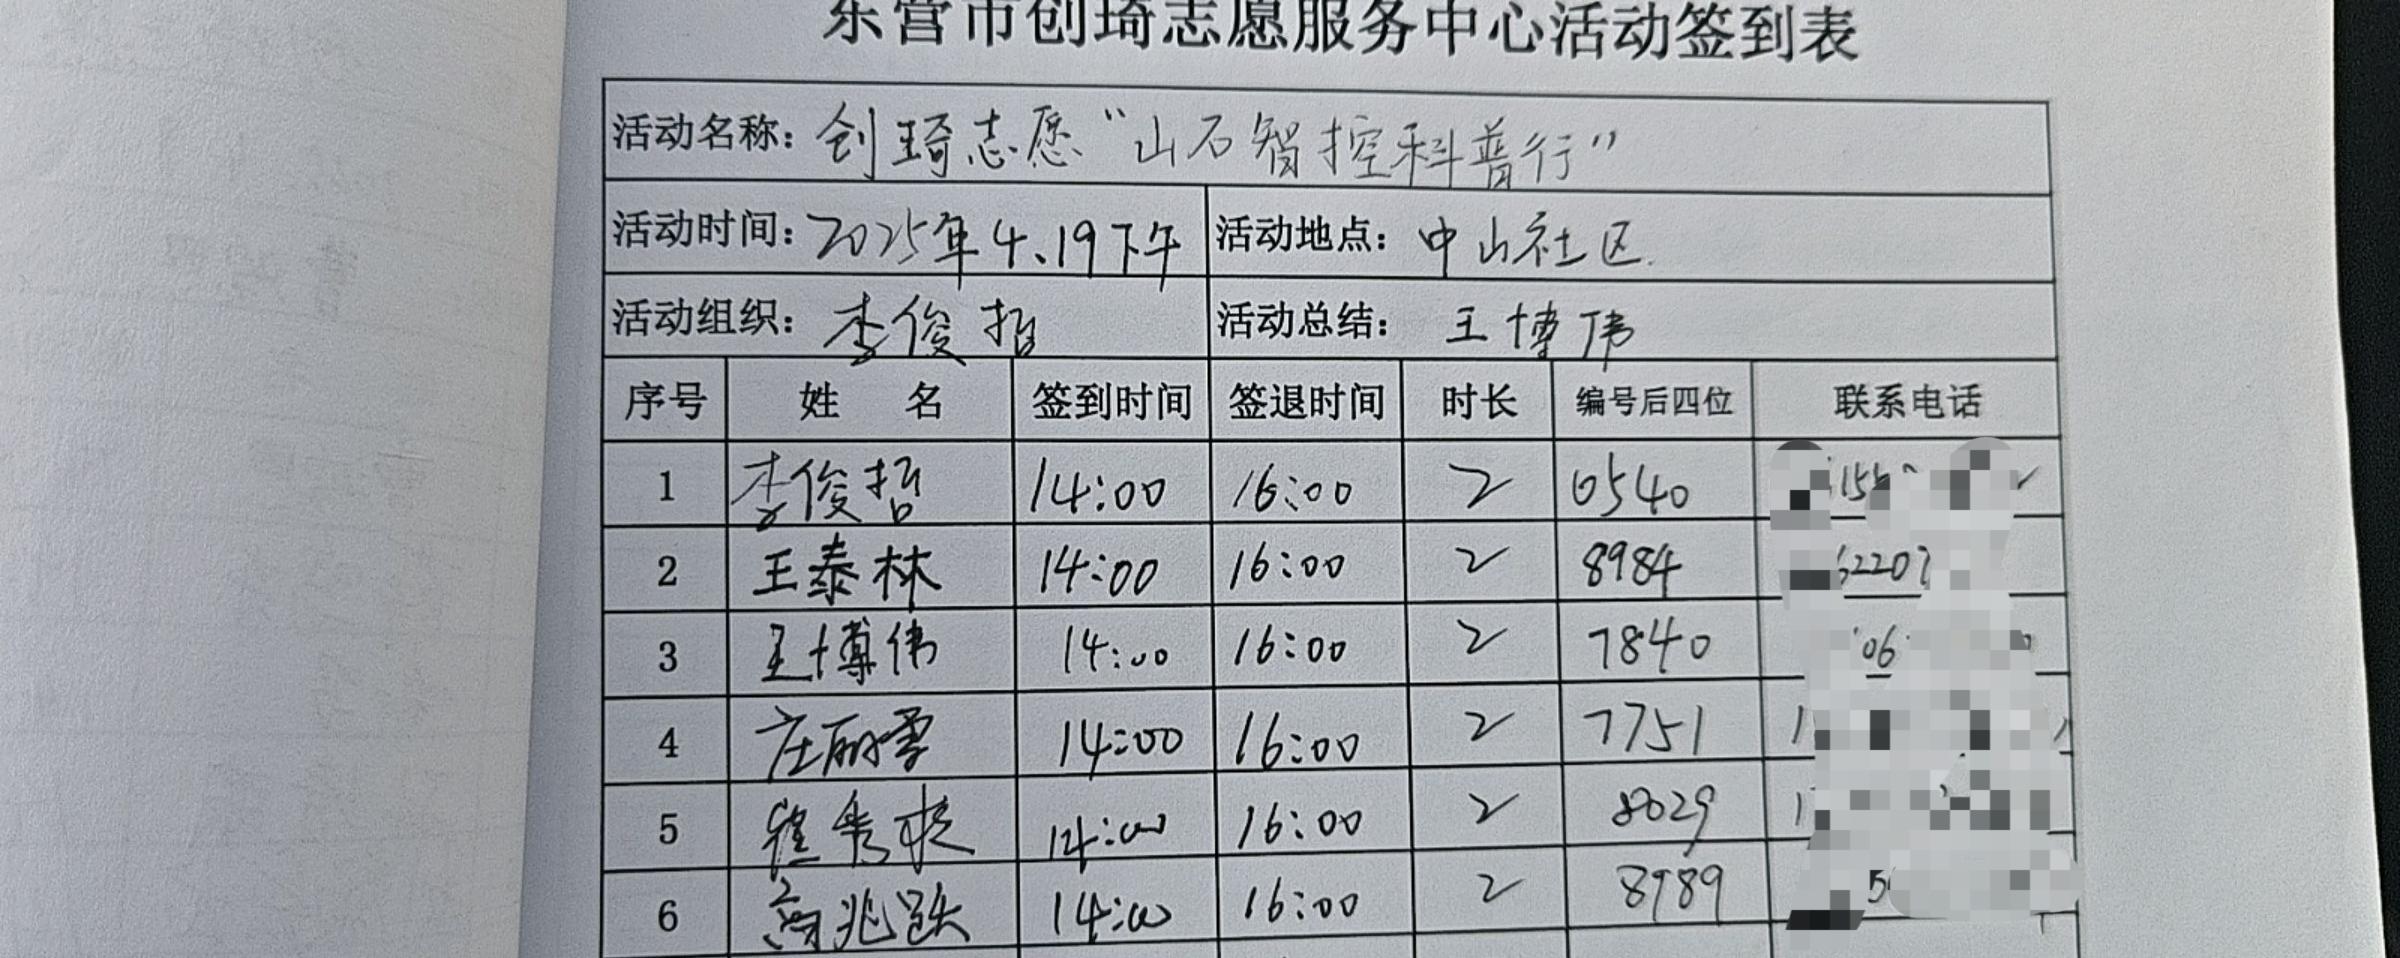 东营市创琦志愿服务中心活动签到表
活动名称：创琦志愿“山石智控科普行”
活动时间：2025年4.19下午 活动地点：中山社区
活动组织：李俊哲 活动总结：王博伟
序号 姓 名 签到时间 签退时间 时长 编号后四位 联系电话
1 李俊哲 14:00 16:00 2 0540
2 王泰林 14:00 16:00 2 8984 62207
3 王博伟 14:00 16:00 2 7840 06
4 庄丽雪 14:00 16:00 2 7751 1
5 程秀枝 14:00 16:00 2 8029 1
6 高兆跃 14:00 16:00 2 8989 5